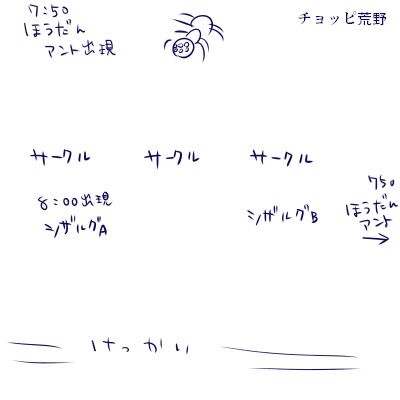 7:50
ほうだん
アント出現
チョッピ荒野
サークル サークル サークル
8:00出現
シザルグA
シザルグB
750
ほうだん
アント
→
けっかい